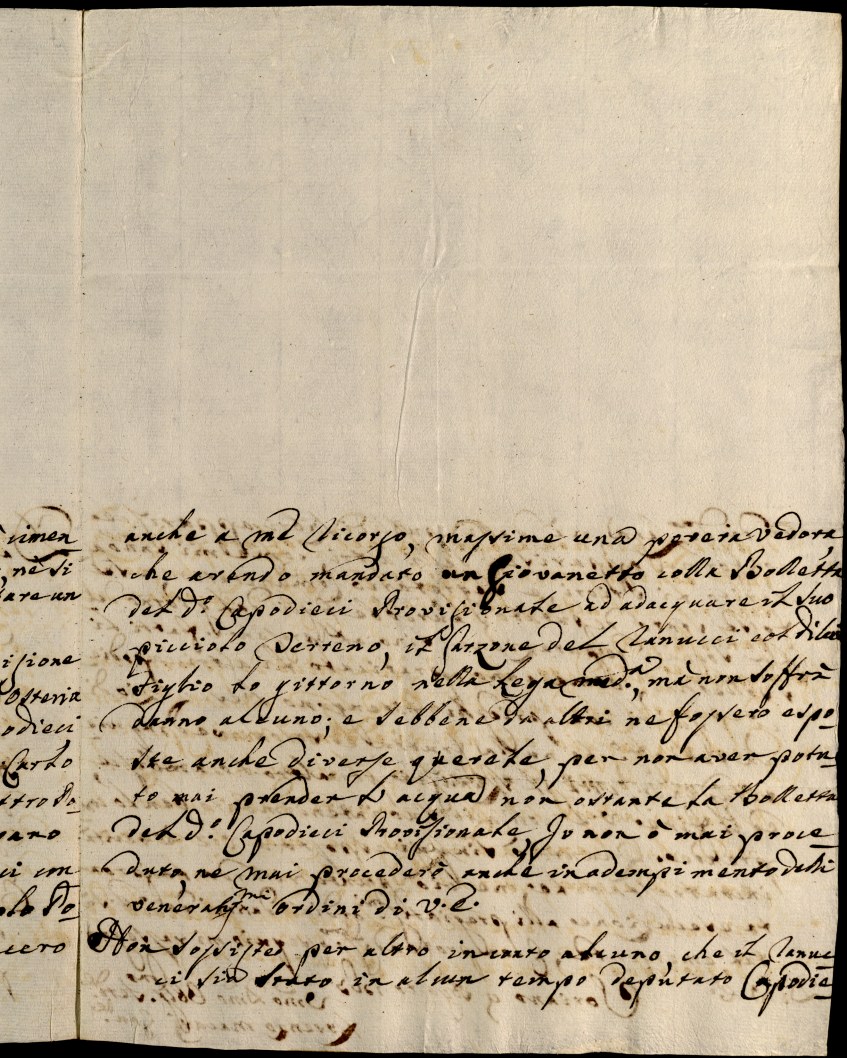 cimen
nè si
tare un
isione
Osteria
odieci
Carlo
ttro Po
pano
ci con
olo Po
cero
anche a me ricorso, massime una povera Vedova,
che avendo mandato un Giovanetto colla Bolletta
del d.º Capodieci Provisionale ad adacquare il suo
picciolo Terreno, il Garzone del Vanucci col di lui
Figlio lo gittorno nella Lega med.ª, mà non soffrì
danno alcuno; e sebbene da altri ne fossero espo=
ste anche diverse querele, per non aver potu=
to mai prender l'acqua non ostante la Bolletta
del d.º Capodieci Provisionale, Io non ò mai proce=
duto, ne mai procederò anche in adempimento delli
venerat.mi ordini di V.E.
Non sussiste per altro in conto alcuno, che il Vanuc=
ci sia stato in alcun tempo deputato Capodie=